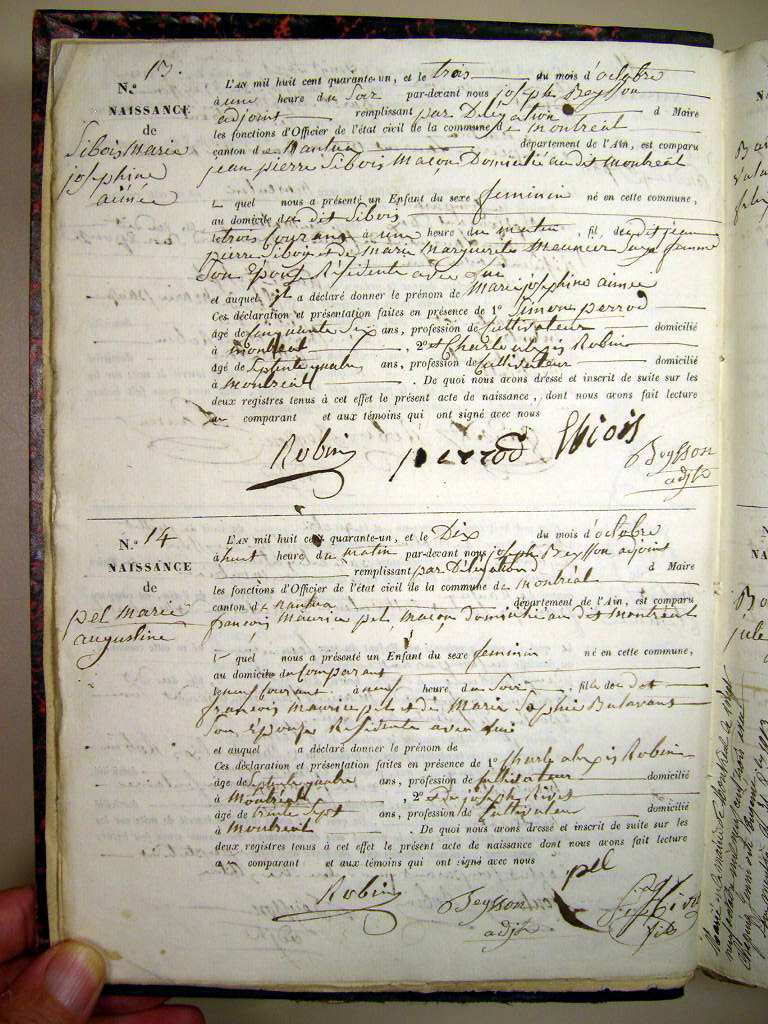 N.° 13.
NAISSANCE
de
Sibois Marie
josephine
aimée
L'AN mil huit cent quarante-un, et le trois du mois d'octobre
à une heure du soir par-devant nous joseph Beysson
adjoint remplissant par Délégation d Maire
les fonctions d'Officier de l'état civil de la commune de montréal
canton de Nantua département de l'Ain, est comparu
jean pierre Sibois Maçon Domicilié au dit montréal
Le quel nous a présenté un Enfant du sexe feminin né en cette commune,
au domicile du dit Sibois
le trois courant à une heure du matin, fil du dit jean
pierre Sibois et de Marie Marguerite Meunier sage femme
Son Epouse Résidente avec lui
et auquel il a déclaré donner le prénom de Marie josephine aimée
Ces déclaration et présentation faites en présence de 1° Simon perrod
âgé de cinquante six ans, profession de cultivateur domicilié
à montréal, 2° et Charle alexis Robin
âgé de septente quatre ans, profession de Cultivateur domicilié
à Montréal. De quoi nous avons dressé et inscrit de suite sur les
deux registres tenus à cet effet le présent acte de naissance, dont nous avons fait lecture
au comparant et aux témoins qui ont signé avec nous
Robin perrod Sibois
Beysson
adjt
N.° 14
NAISSANCE
de
pel marie
augustine
L'AN mil huit cent quarante-un, et le Dix du mois d'octobre
à huit heure du matin par-devant nous joseph Beysson adjoint
remplissant par Délégation d Maire
les fonctions d'Officier de l'état civil de la commune de montréal
canton de Nantua département de l'Ain, est comparu
françois Maurice pel, maçon domicilié au dit montréal
Le quel nous a présenté un Enfant du sexe feminin né en cette commune,
au domicile du comparant
le neuf courant à neuf heure du Soir, fille de dit
francois maurice pel et de Marie Sophie
Son Epouse Résidente avec lui
et auquel a déclaré donner le prénom de
Ces déclaration et présentation faites en présence de 1° Charle alexis Robin
âgé de septente quatre ans, profession de cultivateur domicilié
à Montréal, 2° et de joseph
âgé de trente sept ans, profession de cultivateur domicilié
à Montréal. De quoi nous avons dressé et inscrit de suite sur les
deux registres tenus à cet effet le présent acte de naissance dont nous avons fait lecture
au comparant et aux témoins qui ont signé avec nous
Robin Beysson
adjt
pel